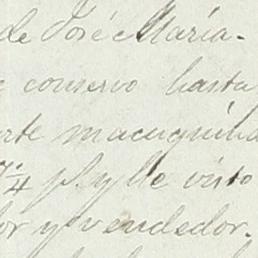 de José María
conservo hasta
macuquina
1/4 p. y lle visto
or y vendedor.